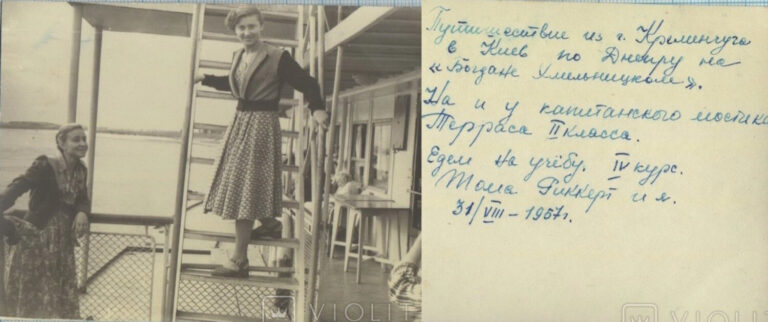 Путишествие из г. Кременчуга
в Киев по Днепру на
«Богдане Хмельницком».
На и у капитанского мостика
Терраса II класса.
Едем на учёбу. IV курс.
Тома Риккерт и я.
31/VIII - 1957г.
VIOLIT
VIOLIT